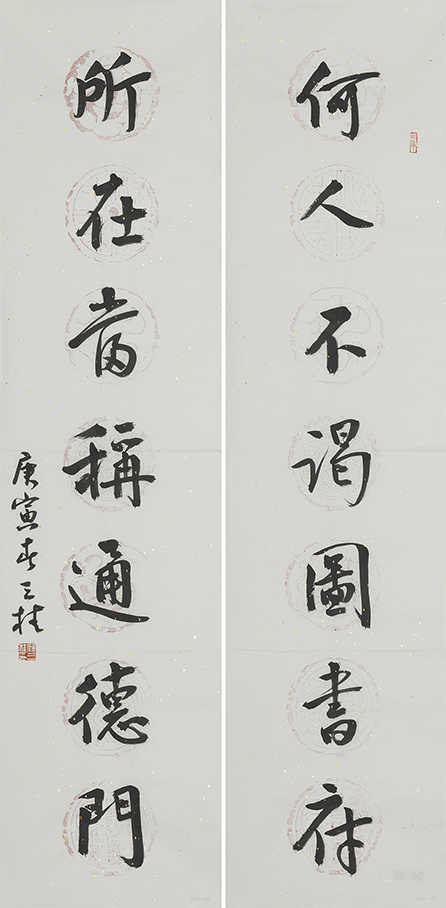 何人不謁圖書府
所在當稱通德門
庚寅春 三桂